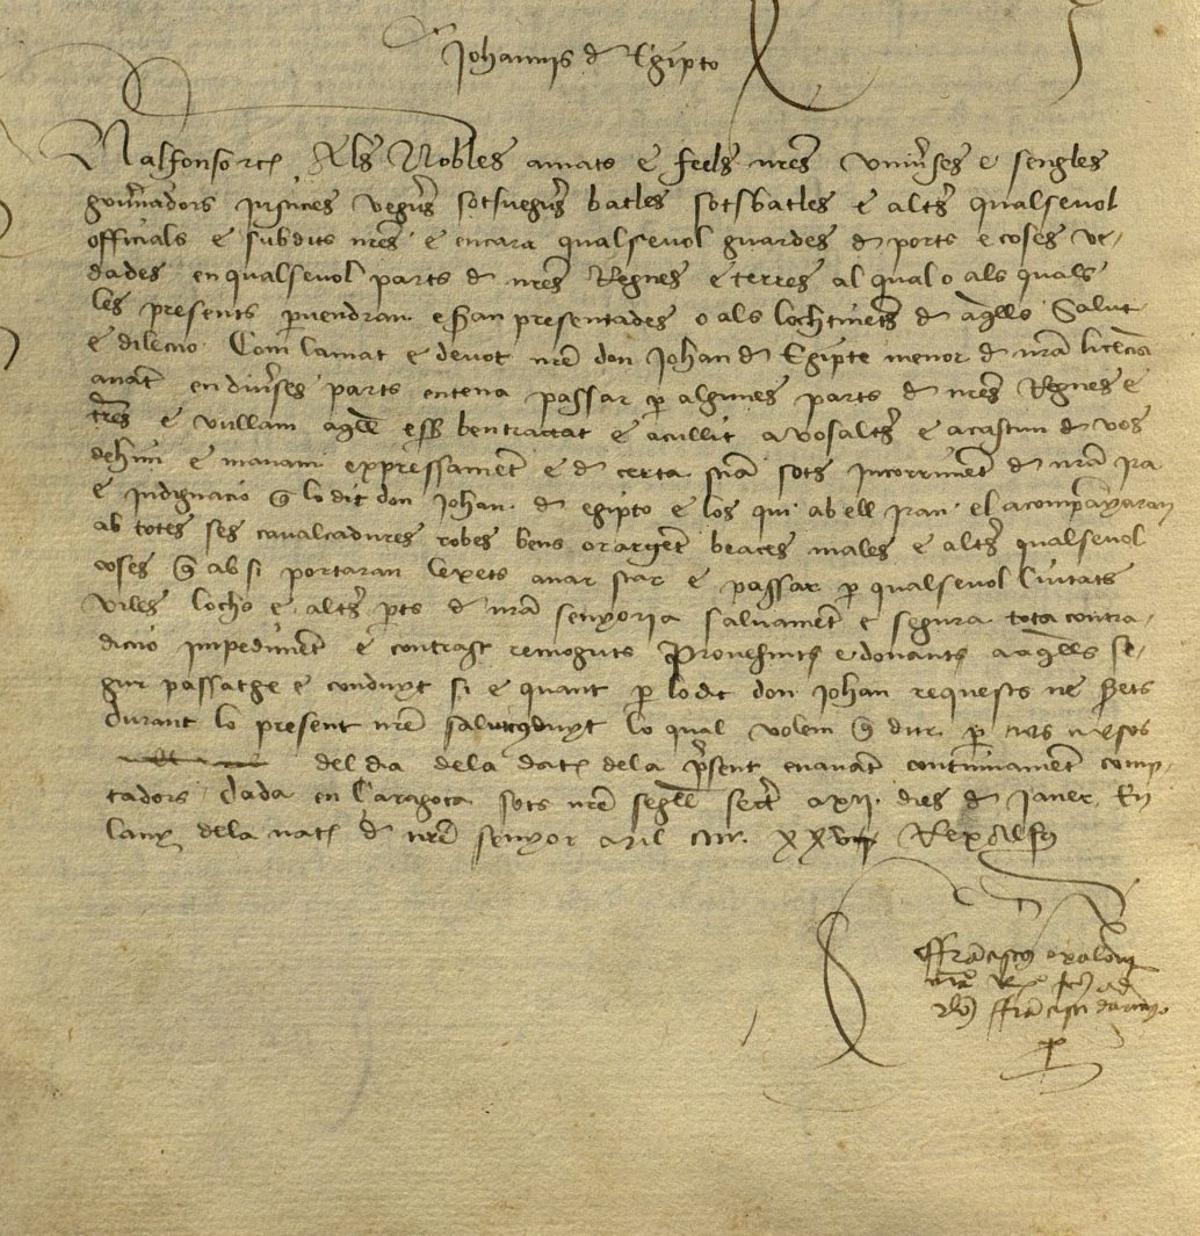 Johannis de Egipto
N alfonso etc. Als Nobles amats e feels nres universes e sengles
governadors justicies veguers sotsveguers batles sotsbatles e altres qualsevol
officials e subdits nres e encara qualsevol guardes de ports e coses ve-
dades en qualsevol parts de nres Regnes e terres al qual o als quals
les presents pervendran e seran presentades o als lochtinents de aquells Salut
e dileccio Com lamat e devot nre don Johan de Egipte menor de nra licencia
anant en diverses parts entena passar per algunes parts de nres Regnes e
terres e vullam aquell esser ben tractat e acullit a vosaltres e a cascun de vos
dehim e manam expressament e de certa sciencia sots incorriment de nra ira
e indignacio que lo dit don Johan de egipto e los qui ab ell iran el acompanyaran
ab totes ses cavalcadures robes bens or argent beaces males e altres qualsevol
coses que ab si portaran lexets anar star e passar per qualsevol Ciutats
viles lochs e altres parts de nra senyoria salvament e segura tota contra-
diccio impediment e contrast remoguts Provehints e donants a aquells se-
gur passatge e conduyt si e quant per lo dit don Johan requests ne serets
durant lo present nre salvconduyt lo qual volem que dur per tres mesos
del dia dela data dela present enavant continuament comp-
tadors Dada en Caragoca sots nre segell secret a xii dies de Janer En
lany dela nat de nre senyor Mil cccc xxv Rex Alfonsus
ffranciscus
ffrancisci darinyo